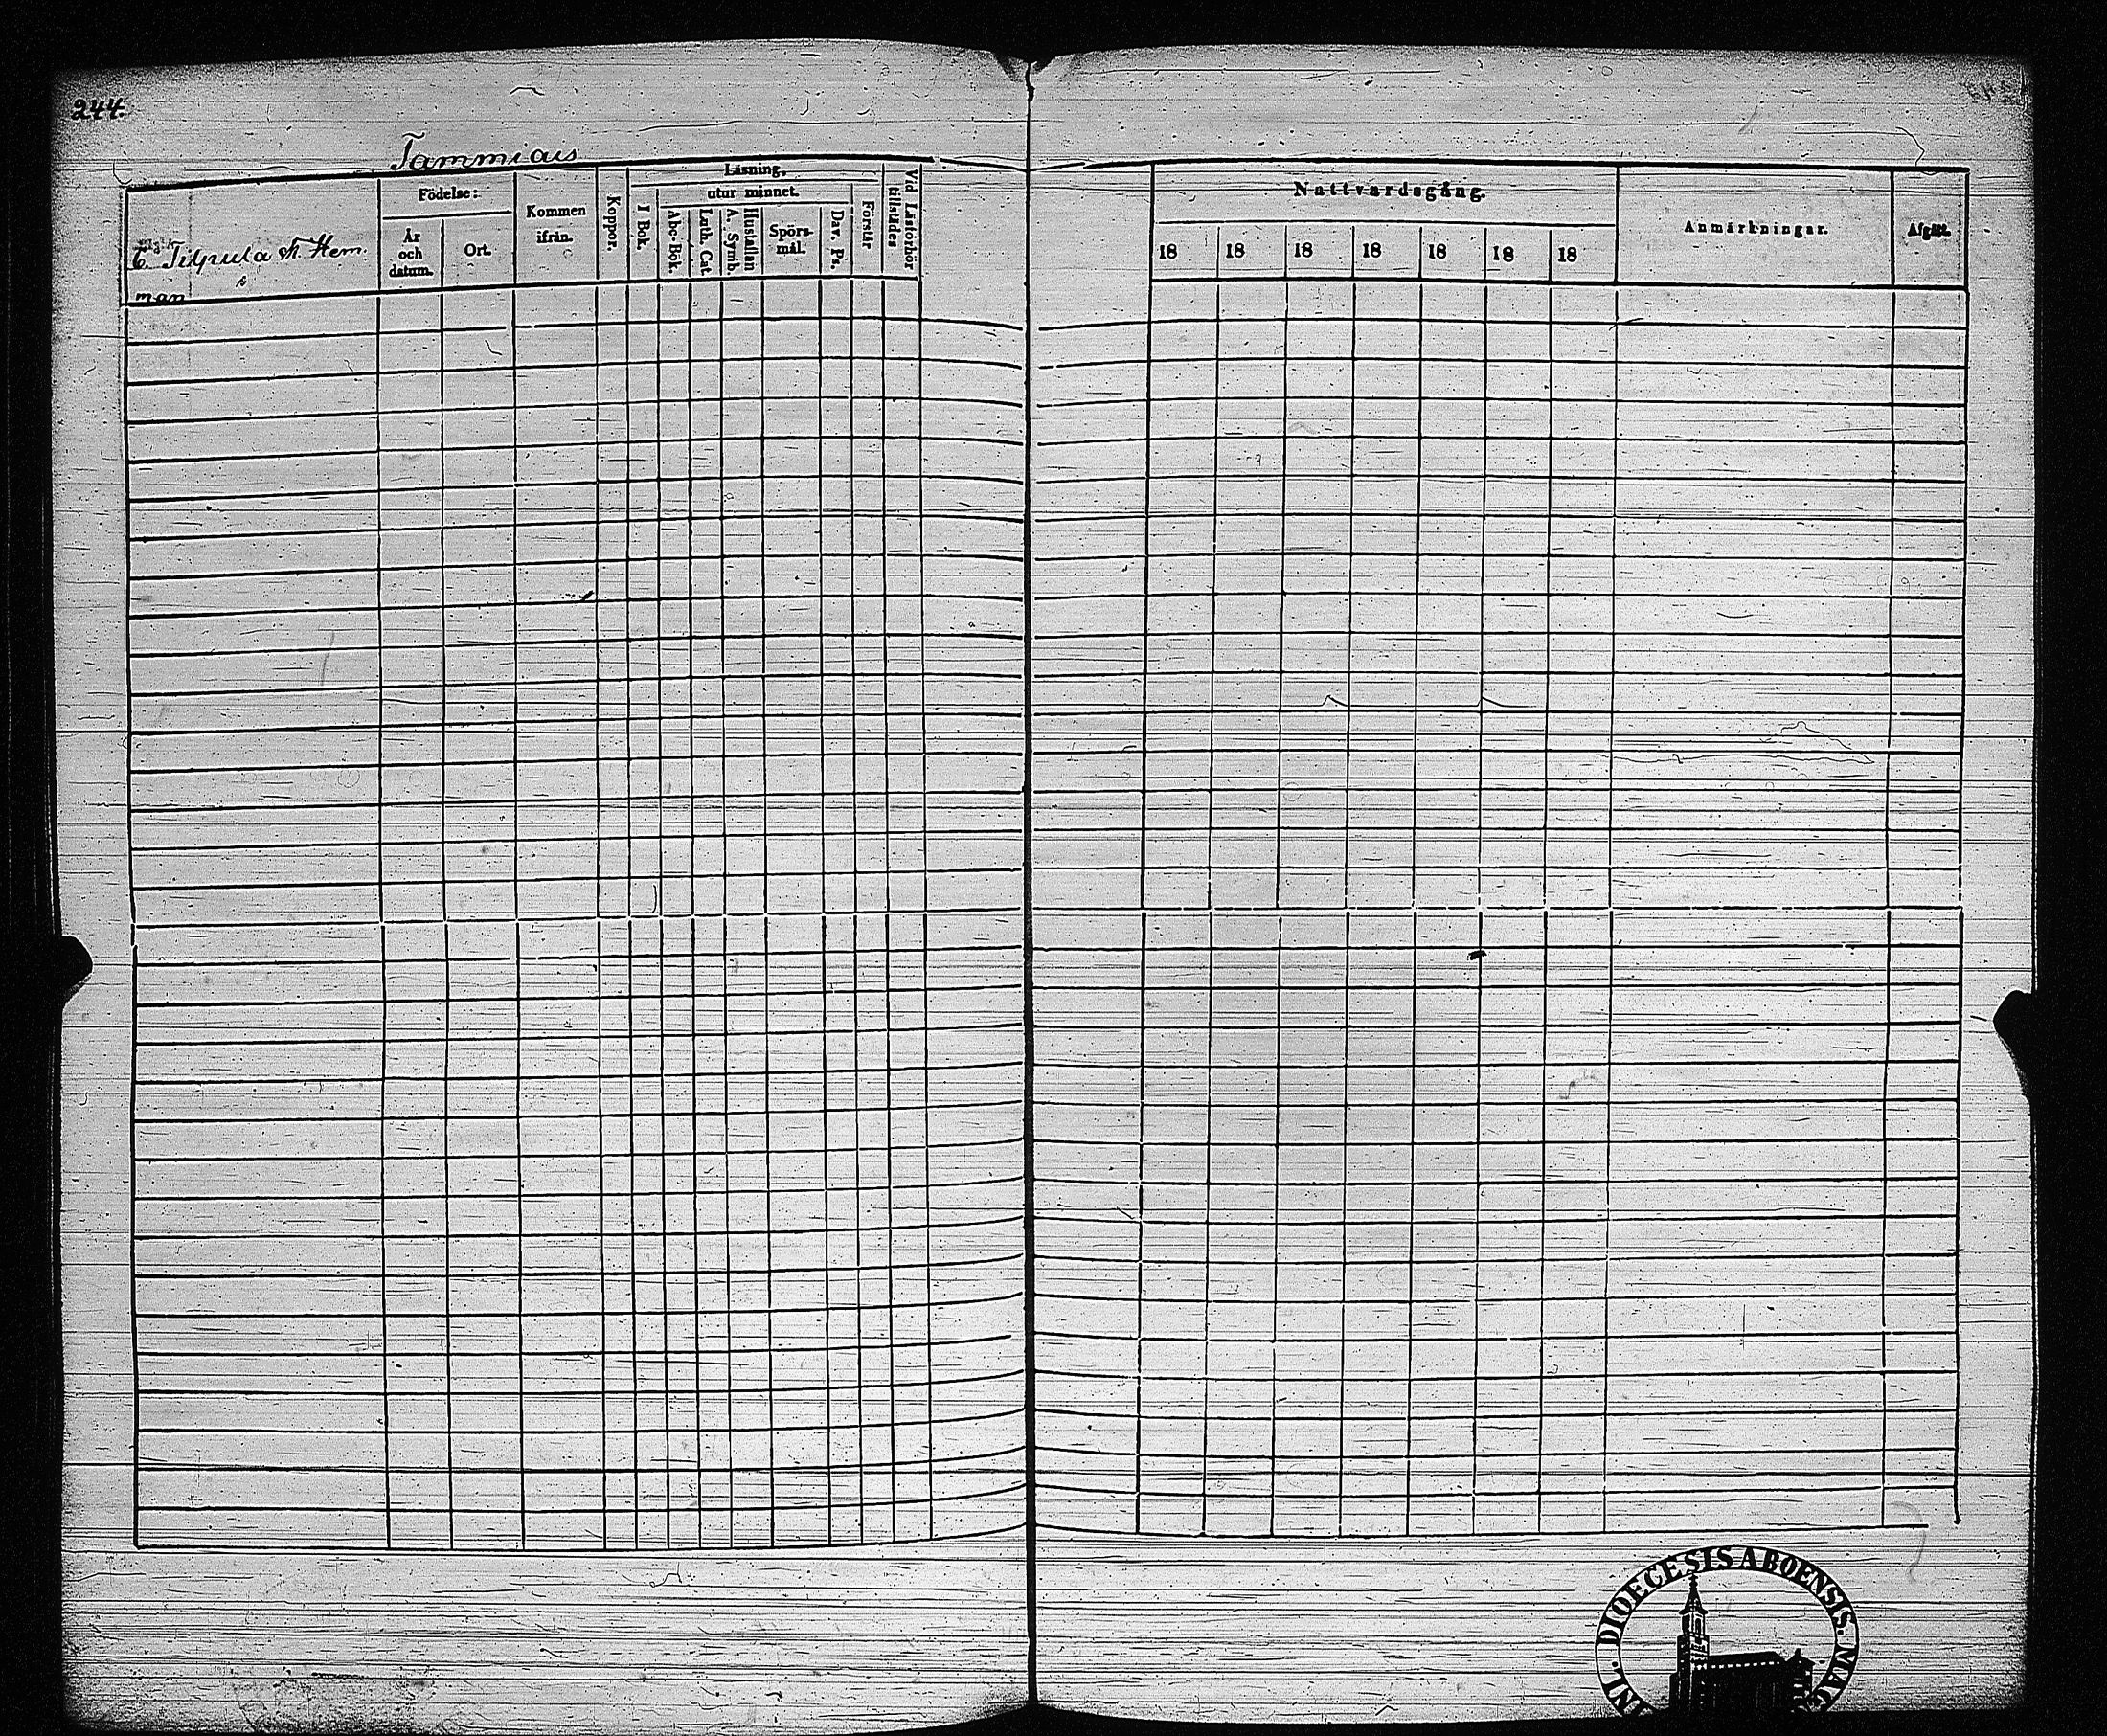 244.
Tammiais
Tilpula Hem
man
Födelse:
År
och
datum.
Ort.
Kommen
ifrån.
Koppor.
Läsning,
utur minnet.
I Bok.
Abc-Bok.
Luth. Cat.
Hustaflan
A. Symb.
Spörs-
mål.
Dav. Ps.
Förstår
Vid Läsförhör
tillstädes
Nattvardsgång.
18 18 18 18 18 18 18
Anmärkningar.
Afgått.
DIOECESIS ABOENSIS.